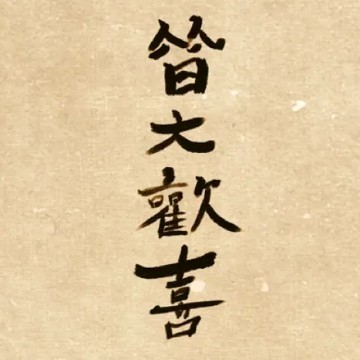 皆大歡喜